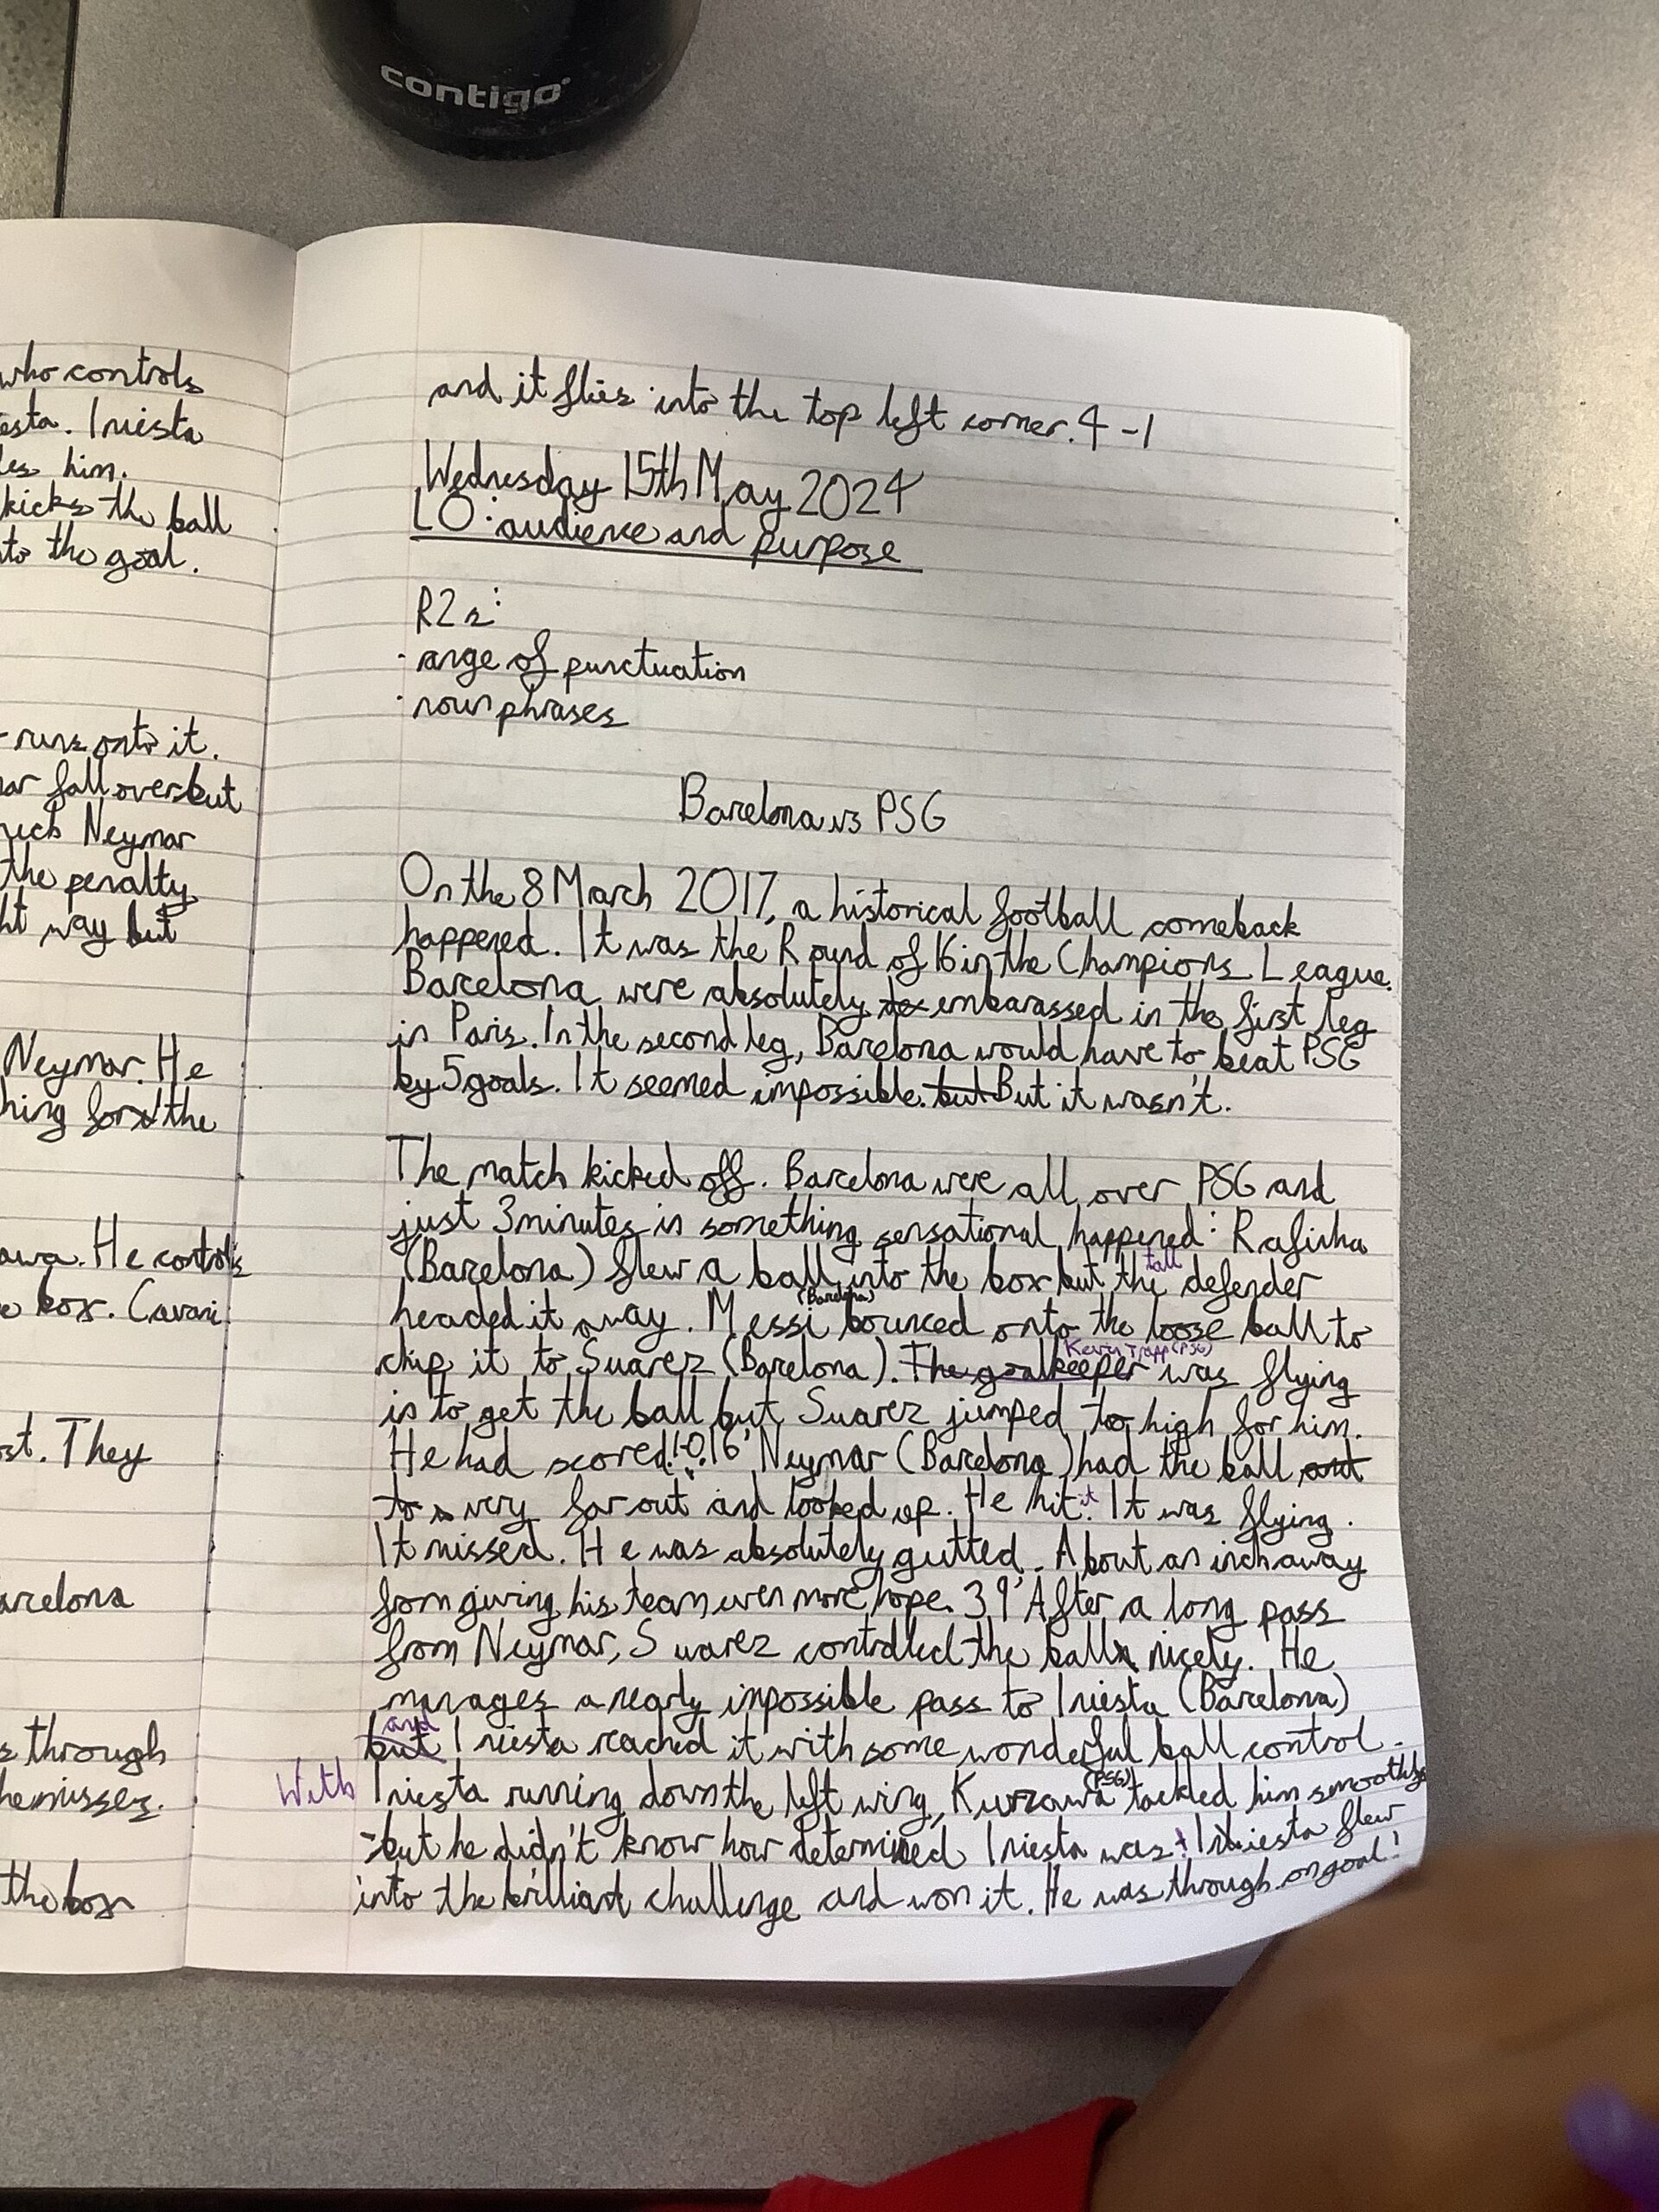 contigo
who controls
esta. Iniesta
les him.
kicks the ball
nto the goal.
runs onto it.
ar fall over but
Neymar
the penalty
ht way but
Neymar. He
hing for the
awa. He controls
e box. Cavani
st. They
arcelona
s through
he misses.
the box
and it flies into the top left corner. 4-1
Wednesday 15th May 2024
LO: audience and purpose
R2s:
· ange of punctuation
· noun phrases
Barcelona vs PSG
On the 8 March 2017, a historical football comeback
happened. It was the Round of 16 in the Champions League.
Barcelona were absolutely embarassed in the first leg
in Paris. In the second leg, Barcelona would have to beat PSG
by 5 goals. It seemed impossible. but But it wasn't.
The match kicked off. Barcelona were all over PSG and
just 3 minutes in something sensational happened: Rafinha
(Barcelona) flew a ball into the box but the tall defender
headed it away. Messi (Barcelona) bounced onto the loose ball to
chip it to Suarez (Barcelona). The goalkeeper Kevin Trapp (PSG) was flying
is to get the ball but Suarez jumped to high for him.
He had scored! 1-0. 16' Neymar (Barcelona) had the ball and
to very far out and looked up. He hit it. It was flying.
It missed. He was absolutely gutted. About an inch away
from giving his team even more hope. 39' After a long pass
from Neymar, Suarez controlled the ball nicely. He
manages a nearly impossible pass to Iniesta (Barcelona)
but and Iniesta reached it with some wonderful ball control.
With Iniesta running down the left wing, Kurzawa (PSG) tackled him smoothly
-but he didn't know how determined Iniesta was! Iniesta flew
into the brilliant challenge and won it. He was through on goal!